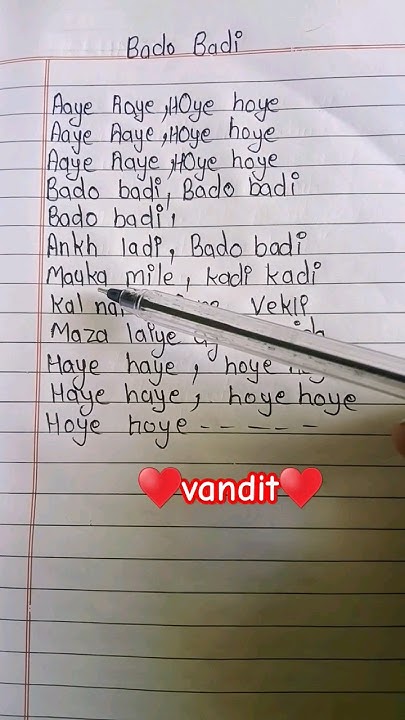 Bado Badi
Aaye Aaye, HOye hoye
Aaye Aaye, HOye hoye
Aaye Aaye, HOye hoye
Bado badi, Bado badi
Bado badi,
Ankh ladi, Bado badi
Mauka mile, kadi kadi
Kal Vekhi
Maza laiye
Haye haye, hoye
Haye haye, hoye hoye
Hoye hoye - - - - -
♥️vandit♥️